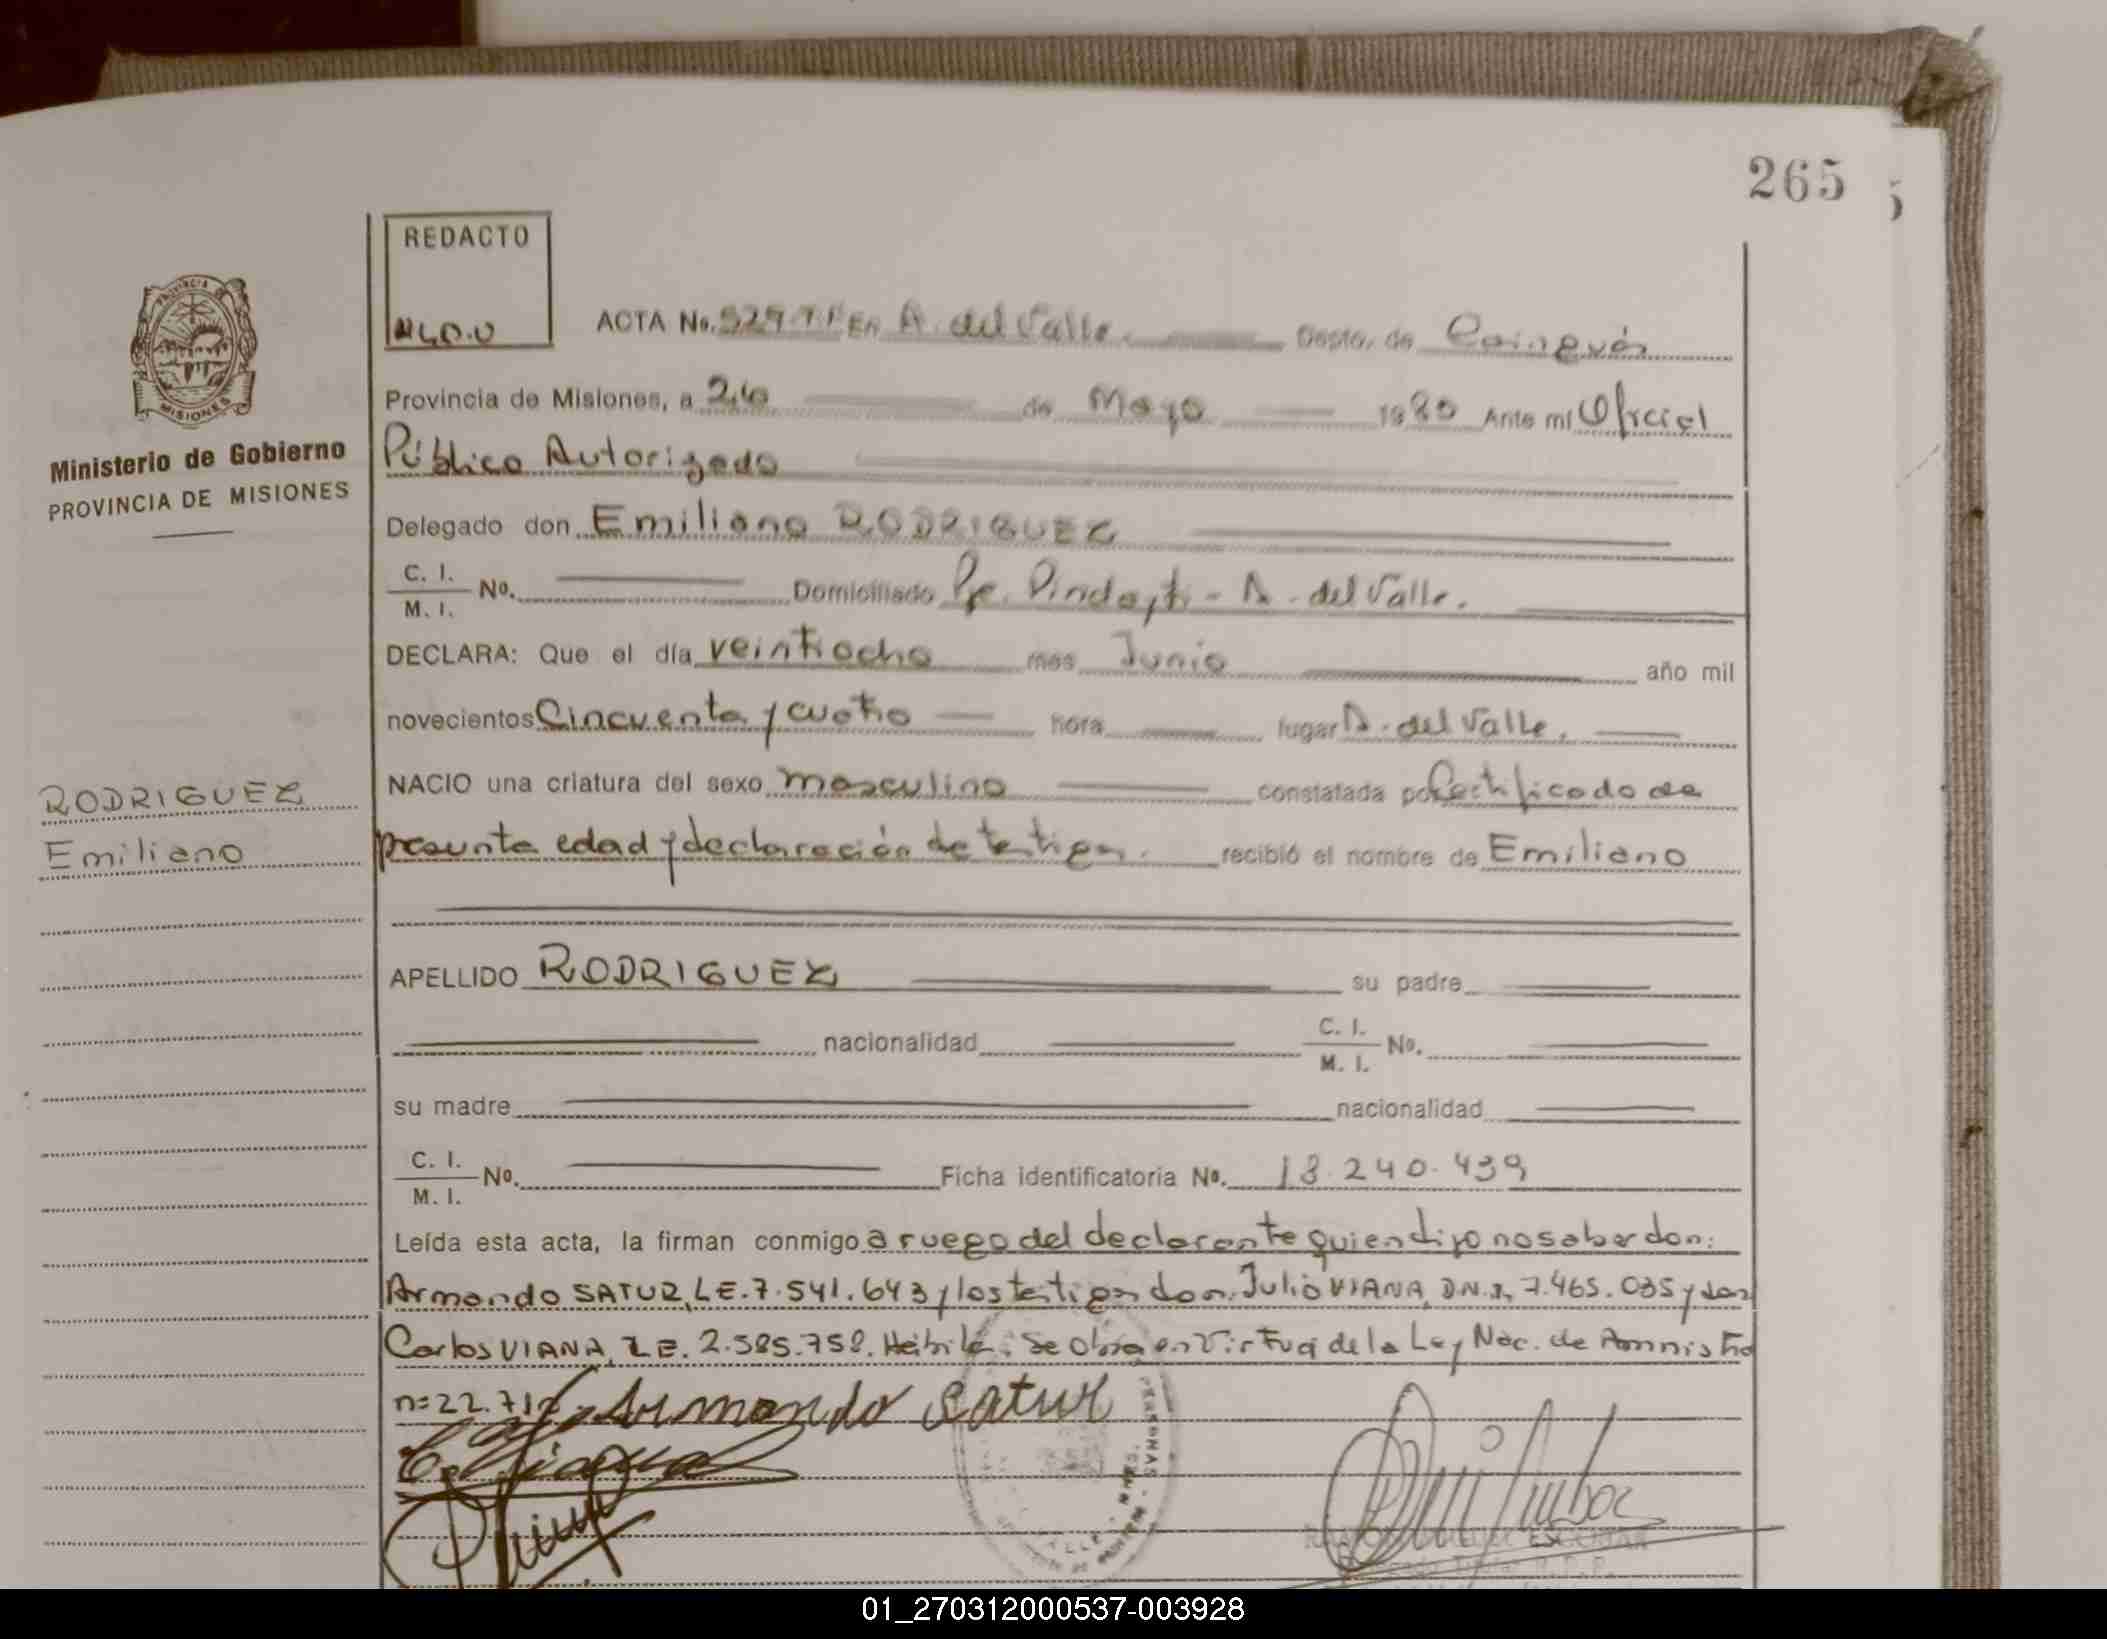 265
REDACTO
PROVINCIA
MISIONES
ACTA No. 529 En A. del Valle. Depto. de Cainguás
Provincia de Misiones, a 26 de Mayo 1980 Ante mi Oficial
Ministerio de Gobierno
Público Autorizado
PROVINCIA DE MISIONES
Delegado don Emiliano RODRIGUEZ
C. I.
M. I. No. Domiciliado Pje. Pindayti - A. del Valle.
DECLARA: Que el día veintiocho mes Junio año mil
novecientos Cincuenta y cuatro hora lugar A. del Valle.
NACIO una criatura del sexo masculino constatada por Certificado de
RODRIGUEZ
presunta edad y declaración de testigos. recibió el nombre de Emiliano
Emiliano
APELLIDO RODRIGUEZ su padre
nacionalidad C. I.
M. I. No.
su madre nacionalidad
C. I.
M. I. No. Ficha identificatoria No. 13.240.439
Leída esta acta, la firman conmigo a ruego del declarante quien dijo no saber don:
Armando SATUR, L.E. 7.541.643 y los testigos don: Julio VIANA, D.N.I. 7.465.035 y don
Carlos VIANA, L.E. 2.585.758. Hábiles: Se obra en Virtud de la Ley Nac. de Amnistía
n=22.71
Armando Satur
PERSONAS
01_270312000537-003928